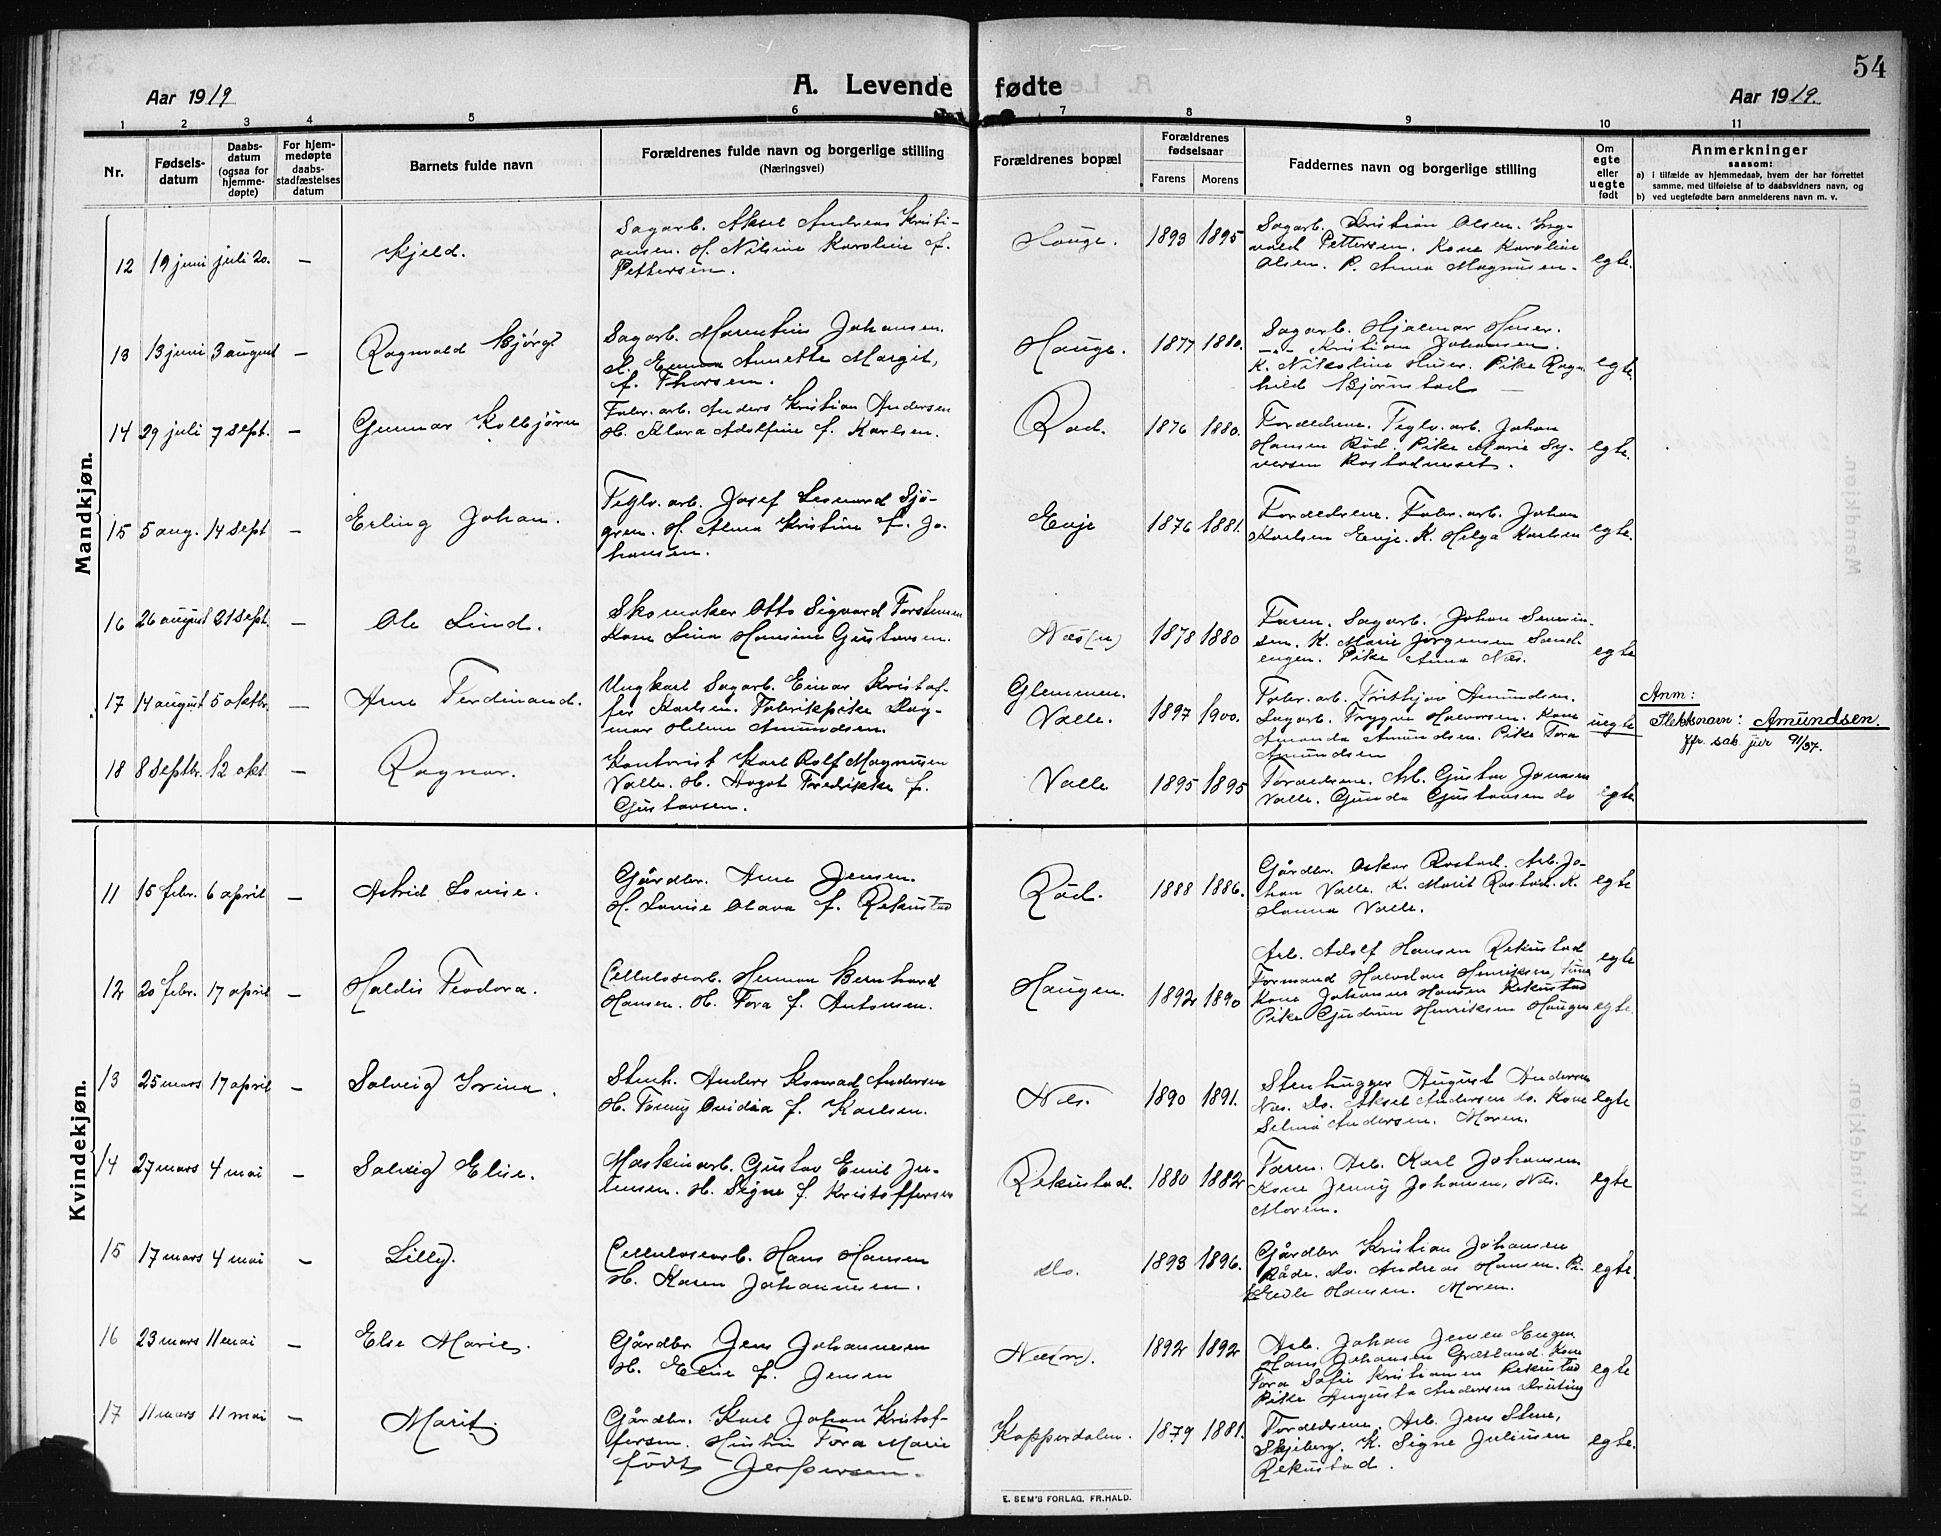 54
Aar 1919
A. Levende fødte
Aar 1919.
1 2 3 4 5 6 7 8 9 10 11
Nr.
Fødsels-
datum
Daabs-
datum
(ogsaa for
hjemme-
døpte)
For hjem-
medøpte
daabs-
stadfæstelses
datum
Barnets fulde navn
Forældrenes fulde navn og borgerlige stilling
(Næringsvei)
Forældrenes bopæl
Forældrenes
fødselsaar
Farens Morens
Faddernes navn og borgerlige stilling
Om
egte
eller
uegte
født
Anmerkninger
saasom:
a) i tilfælde av hjemmedaab, hvem der har forrettet
samme, med tilføielse af to daabsvidners navn, og
b) ved uegtefødte barn anmelderens navn m. v.
Mandkjøn.
12 19 juni juli 20. — Kjeld.
Sagarb. Aksel Andreas Kristi-
ansen. H. Nilsine Karoline f.
Pettersen.
Hauge. 1893 1895
Sagarb. Kristian Olsen. Ing-
vald Pettersen. Kone Karoline
Olsen. P. Anna Magnusen.
egte.
13 13 juni 3 august — Ragnvald Bjørg.
Sagarb. Marentius Johansen.
H. Emma Annette Margit,
f. Thorsen.
Hauge. 1877 1880.
Sagarb. Hjalmar Huser.
—"— Kristian Johansen.
K. Nikoline Huser. Pike Ragn-
hild Bjørnstad —
egte.
14 29 juli 7 sept. — Gunnar Kolbjørn
Fabr. arb. Anders Kristian Andersen
H. Klara Adolfine f. Karlsen.
Rød. 1876 1880.
Forældrene. Teglv. arb. Johan
Hansen Rød. Pike Marie Sy-
versen Rostadneset.
egte.
15 5 aug. 14 sept — Erling Johan.
Teglv. arb. Josef Leonard Sjö-
gren. H. Alma Kristine f. Jo-
hansen.
Evje 1876 1881.
Forældrene. Fabr. arb. Johan
Karlsen Evje. K. Helga Karlsen
egte.
16 26 august 21 sept. — Ole Lind.
Skomaker Otto Sigvard Torstensen
Kone Lina Hansine Gustavsen.
Næs(n) 1878 1880
Faren. Sagarb. Johan
sen. K. Marie Jørgensen Sand-
engen. Pike Anna Næs.
egte
17 14 august 5 oktbr. — Arne Ferdinand.
Ungkarl Sagarb. Einar Kristof-
fer Karlsen. Fabrikpike Dag-
mar Helene Amundsen.
Glemmen.
Valle. 1897 1900.
Fabr. arb. Frithjov Amundsen.
Sagarb. Trygve Halvorsen. Kone
Amanda Amundsen. Pike Tora
Amundsen
uegte
Anm:
Slektsnavn: Amundsen.
Jfr. sak jur 91/37.
18 8 septbr. 12 okt. — Ragnar.
Kontorist Karl Rolf Magnusen
Valle. H. Aagot Fredrikke f.
Gustavsen.
Valle 1895 1895
Forældrene. Arb. Gustav Jonasen
Valle. Gunda Gustavsen do
egte
Kvindekjøn.
11 15 febr. 6 april — Astrid Lovise.
Gårdbr. Arne Jensen.
H. Lovise Olava f. Rekustad
Rød. 1888 1886.
Gårdbr. Oskar Rostad. Arb. Jo-
han Valle. K. Marit Rostad. K.
Hanna Valle.
egte
12 20 febr. 17 april — Haldis Teodora.
Cellulosearb. Herman Bernhard
Hansen. H. Tora f. Antonsen.
Haugen. 1892 1890
Arb. Adolf Hansen Rekustad
Formand Halvdan Henriksen,
Kone Johanne Hansen Rekustad
Pike Gudrun Henriksen Haugen
egte
egte.
13 25 mars 17 april — Solveig Irina.
Stenh. Anders Konrad Andersen
H. Fanny Ovidia f. Karlsen.
Næs. 1890 1891.
Stenhugger August Andersen
Næs. Do. Aksel Andersen do. Kone
Selma Andersen. Moren.
egte
14 27 mars 4 mai — Solveig Elise.
Maskinarb. Gustav Emil Ju-
liussen. H. Signe f. Kristoffersen
Rekustad. 1880 1882
Faren. Arb. Karl Johansen
Kone Jenny Johansen, Næs.
Moren.
egte
15 17 mars 4 mai — Lilly.
Cellulosearb. Hans Hansen
H. Karen Johannesen.
do. 1893 1896.
Gårdbr Kristian Johansen
Råde. Do. Andreas Hansen. Pi-
ke Hansen. Moren.
egte.
16 23 mars 11 mai — Else Marie.
Gårdbr Jens Johannesen
H. Elise f. Jensen
Næs(n). 1892 1892
Arb. Johan Jensen Engen
Hans Johansen Græsland. Kone
Tora Sofie Kristiansen Rekustad
Pike Augusta Andersen
egte
17 11 mars 11 mai — Marit.
Gårdbr. Karl Johan Kristof-
fersen. Hustru Tora Marie
født Jespersen.
Kopperdalen. 1879 1881.
Forældrene. Arb. Jens Stene,
Skjeberg. K. Signe Juliusen
Rekustad.
egte.
E. SEM'S FORLAG, FR.HALD.